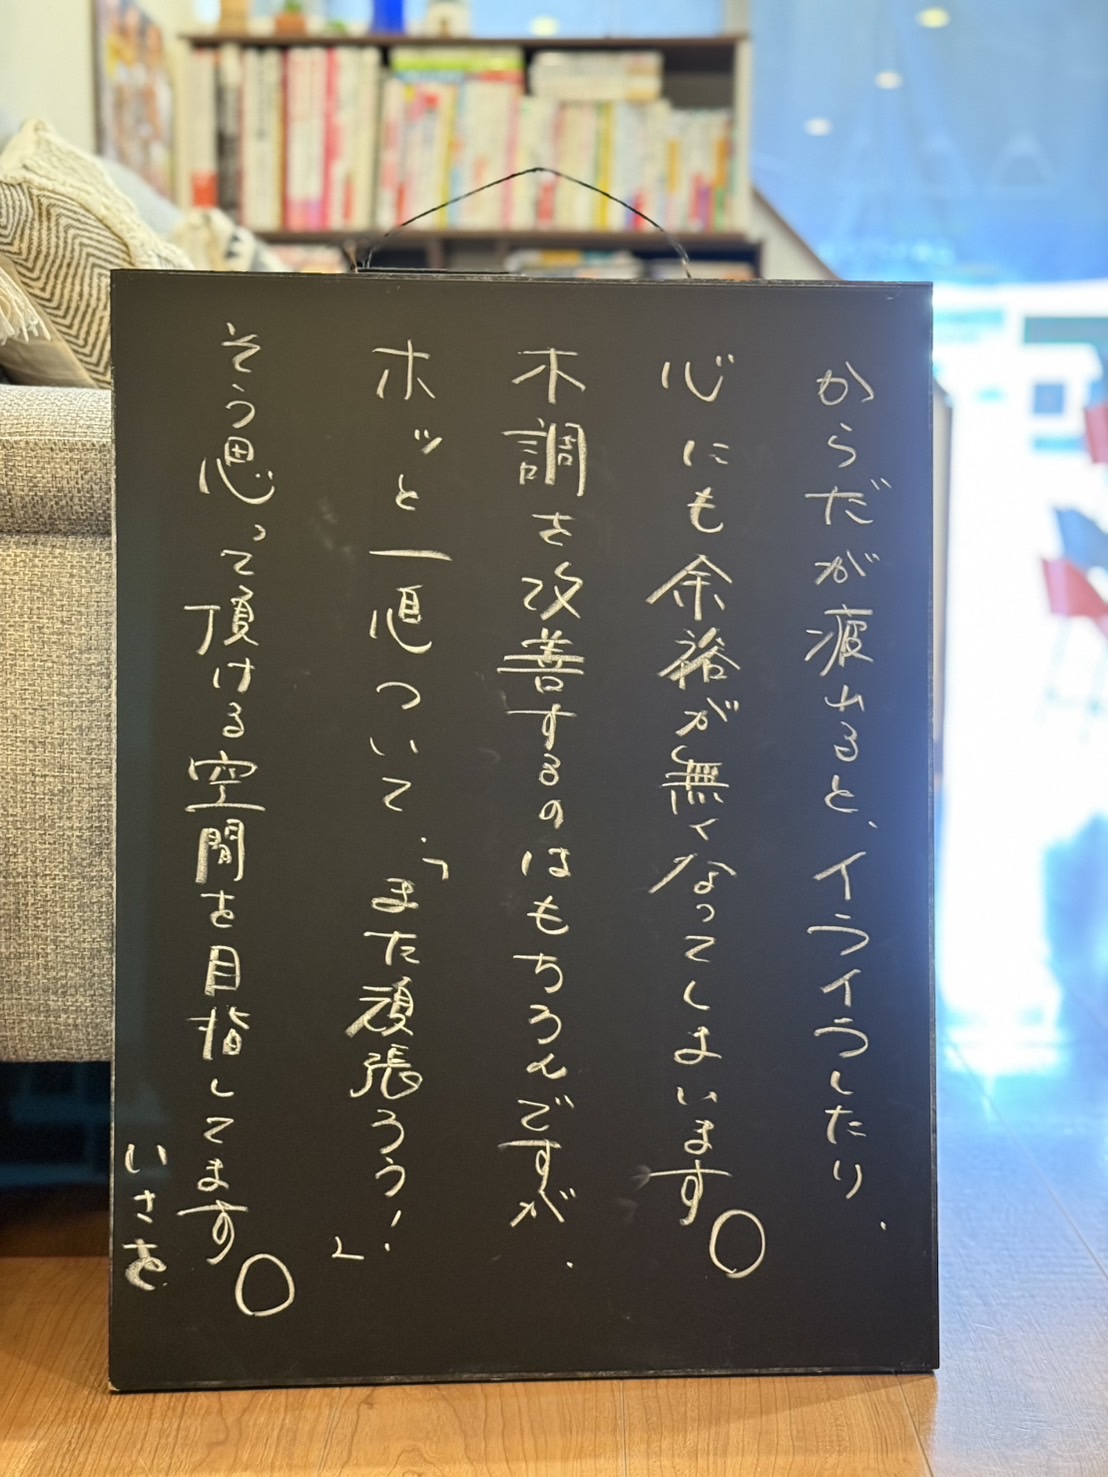 からだが疲れると、イライラしたり、
心にも余裕が無くなってしまいます。
不調を改善するのはもちろんですが、
ホッと一息ついて、「また頑張ろう!」
そう思って頂ける空間を目指してます。
いさを